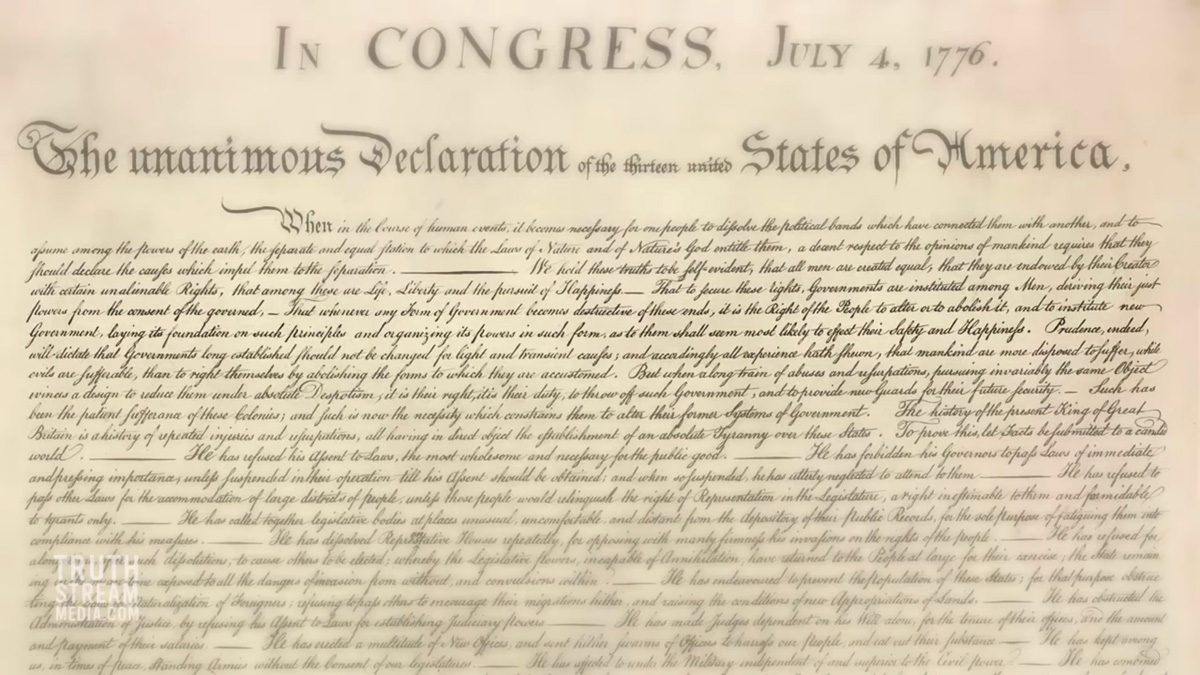 IN CONGRESS, JULY 4, 1776.
The unanimous Declaration of the thirteen united States of America,
When in the Course of human events, it becomes necessary for one people to dissolve the political bands which have connected them with another, and to
assume among the powers of the earth, the separate and equal station to which the Laws of Nature and of Nature's God entitle them, a decent respect to the opinions of mankind requires that they
should declare the causes which impel them to the separation. ——— We hold these truths to be self-evident, that all men are created equal, that they are endowed by their Creator
with certain unalienable Rights, that among these are Life, Liberty and the pursuit of Happiness.— That to secure these rights, Governments are instituted among Men, deriving their just
powers from the consent of the governed, — That whenever any Form of Government becomes destructive of these ends, it is the Right of the People to alter or to abolish it, and to institute new
Government, laying its foundation on such principles and organizing its powers in such form, as to them shall seem most likely to effect their Safety and Happiness. Prudence, indeed,
will dictate that Governments long established should not be changed for light and transient causes; and accordingly all experience hath shewn, that mankind are more disposed to suffer, while
evils are sufferable, than to right themselves by abolishing the forms to which they are accustomed. But when a long train of abuses and usurpations, pursuing invariably the same Object
evinces a design to reduce them under absolute Despotism, it is their right, it is their duty, to throw off such Government, and to provide new Guards for their future security. — Such has
been the patient sufferance of these Colonies; and such is now the necessity which constrains them to alter their former Systems of Government. The history of the present King of Great
Britain is a history of repeated injuries and usurpations, all having in direct object the establishment of an absolute Tyranny over these States. To prove this, let Facts be submitted to a candid
world. ——— He has refused his Assent to Laws, the most wholesome and necessary for the public good. ——— He has forbidden his Governors to pass Laws of immediate
and pressing importance, unless suspended in their operation till his Assent should be obtained; and when so suspended, he has utterly neglected to attend to them. ——— He has refused to
pass other Laws for the accommodation of large districts of people, unless those people would relinquish the right of Representation in the Legislature, a right inestimable to them and formidable
to tyrants only. ——— He has called together legislative bodies at places unusual, uncomfortable, and distant from the depository of their Public Records, for the sole purpose of fatiguing them into
compliance with his measures. ——— He has dissolved Representative Houses repeatedly, for opposing with manly firmness his invasions on the rights of the people. ——— He has refused for
a long such dissolutions, to cause others to be elected; whereby the Legislative powers, incapable of Annihilation, have returned to the People at large for their exercise; the State remain
ing exposed to all the dangers of invasion from without, and convulsions within. ——— He has endeavoured to prevent the population of these States; for that purpose obstruc
ting Naturalization of Foreigners; refusing to pass others to encourage their migrations hither, and raising the conditions of new Appropriations of Lands. ——— He has obstructed the
Administration of Justice, by refusing his Assent to Laws for establishing Judiciary powers. ——— He has made Judges dependent on his Will alone, for the tenure of their offices, and the amount
and payment of their salaries. ——— He has erected a multitude of New Offices, and sent hither swarms of Officers to harrass our people, and eat out their substance. ——— He has kept among
us, in times of peace, Standing Armies without the Consent of our legislatures. ——— He has affected to render the Military independent of and superior to the Civil power. ——— He has combined
TRUTH
STREAM
MEDIA.COM